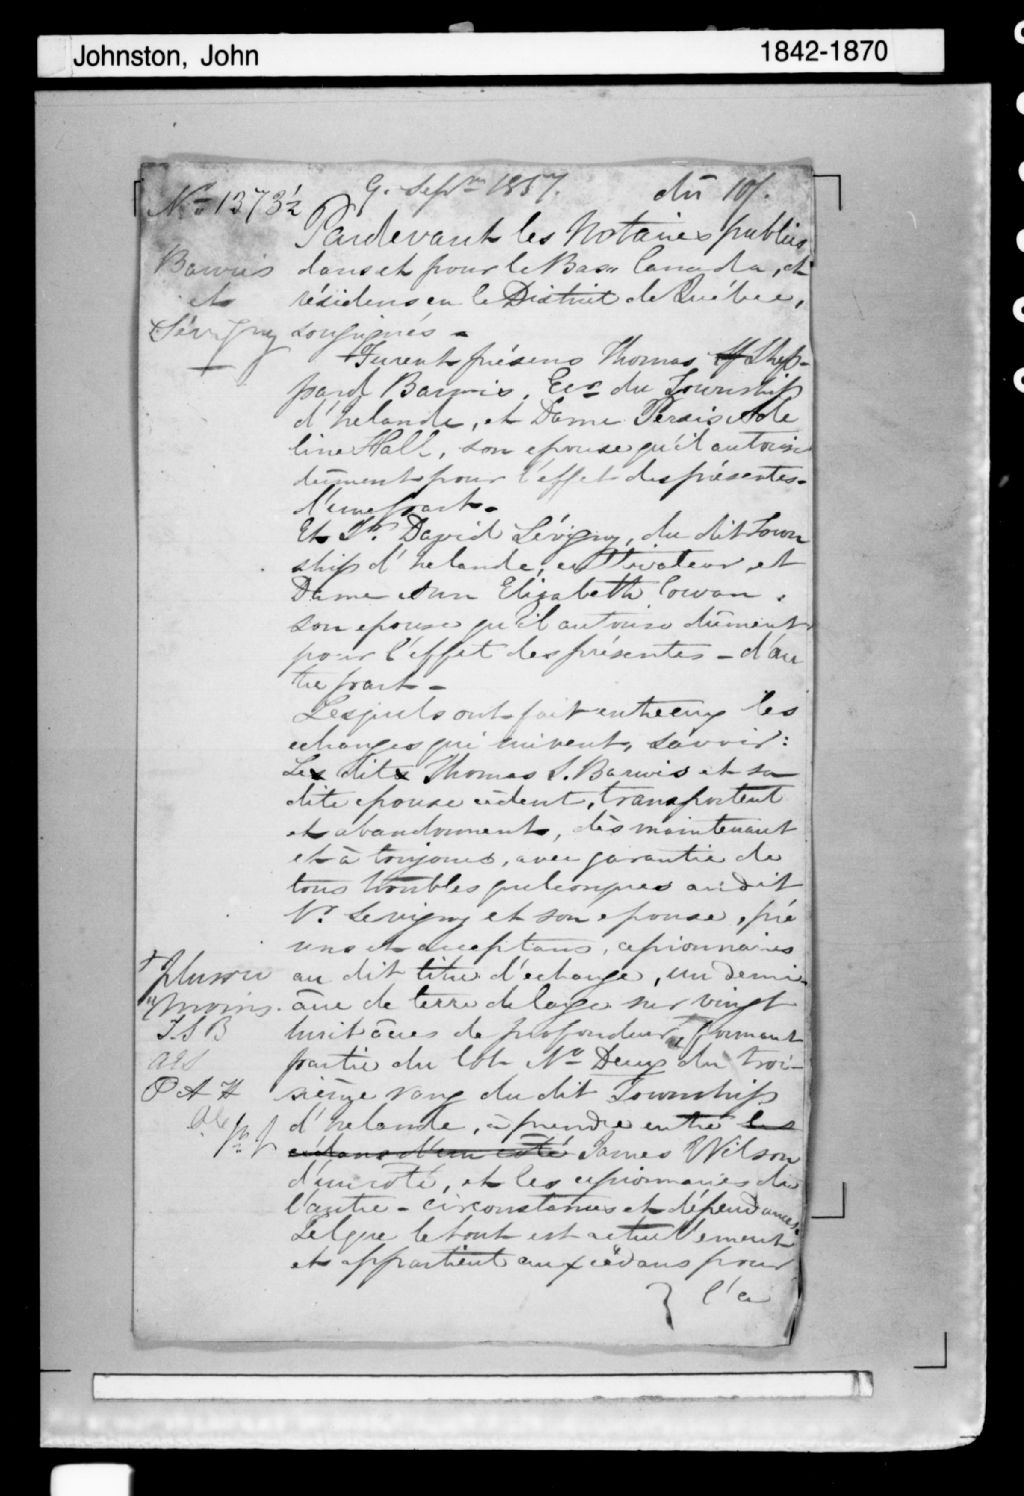 Johnston, John 1842-1870
9. Septre 1857. dû 10/.
No 1373½
Pardevant les Notaires publics
Barwis dans et pour le Bas Canada, et
et résidens en le District de Québec,
Sévigny soussignés -
Furent présens Thomas Shep-
pard Barwis, Ecr du Township
d'Irelande, et Dame Persis Ade
line Hall, son epouse qu'il autorise
dûment pour l'effet des présentes -
d'une part -
Et Sr. David Sévigny, du dit Town
ship d'Irelande, cultivateur, et
Dame Ann Elizabeth Cowan,
son epouse qu'il autorise dûment
pour l'effet des présentes - d'au
tre part -
Lesquels ont fait entre eux les
echanges qui suivent, savoir:
Les dits Thomas S. Barwis et sa
dite epouse cèdent, transportent
et abandonnent, dès maintenant
et à toujours, avec garantie de
tous troubles quelconques au dit
Sr Sevigny et son epouse, pré
sens et acceptans, cessionnaires
+ plus ou au dit titre d'echange, un demi
moins. âcre de terre de large sur vingt
T.S B huit âcres de profondeur + formant
partie du lot No Deux du troi-
P A H sième rang du dit Township
d'Irelande, à prendre entre les
cédans d'un côté James Wilson
d'un côté, et les cessionnaires de
l'autre - circonstances et dépendances.
Tel que le tout est actuellement
et appartient aux cédans pour
l'a